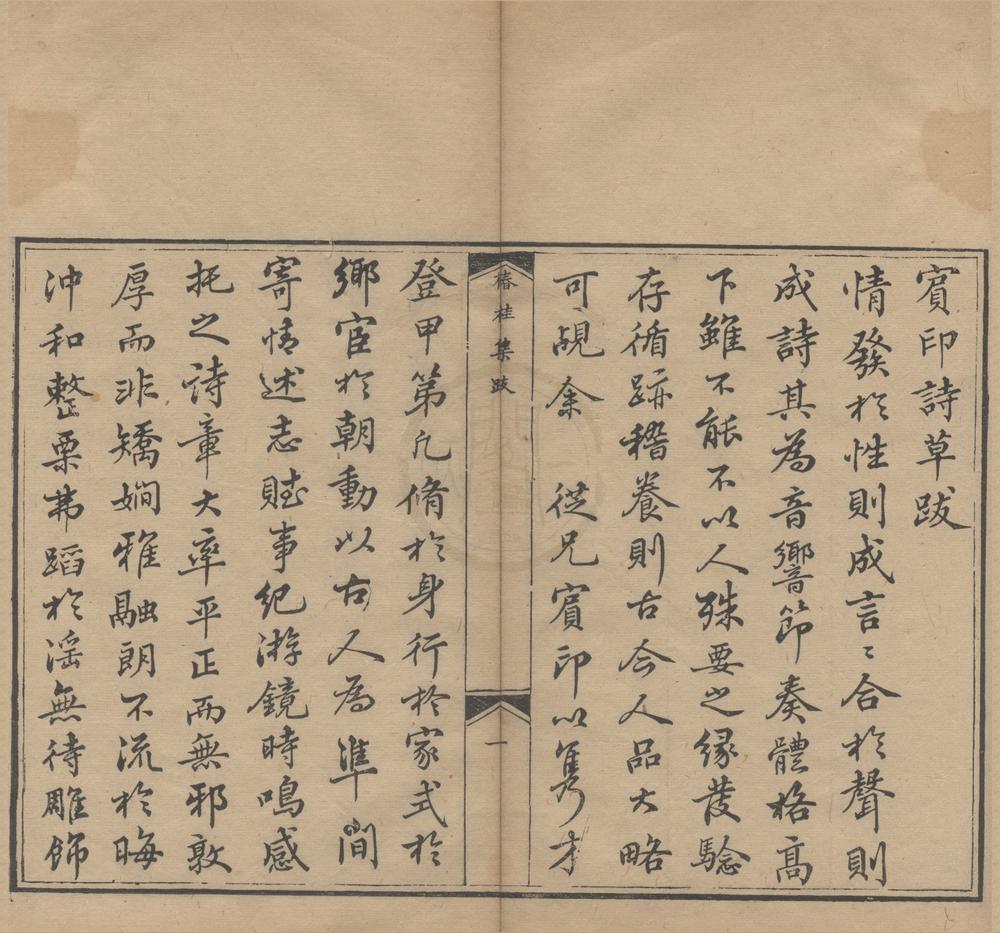 賓印詩草跋
情發於性則成言〻合於聲則
成詩其為音響節奏體格高
下雖不能不以人殊要之緣發驗
存循跡稽養則古今人品大略
可覘余 從兄賓印以雋才
椿桂集跋
一
登甲第凡脩於身行於家式於
鄉宦於朝動以古人為準間
寄情述志賦事紀游鏡時鳴感
托之詩章大率平正而無邪敦
厚而非矯嫻雅融朗不流於晦
沖和整栗弗蹈於滛無待雕飾